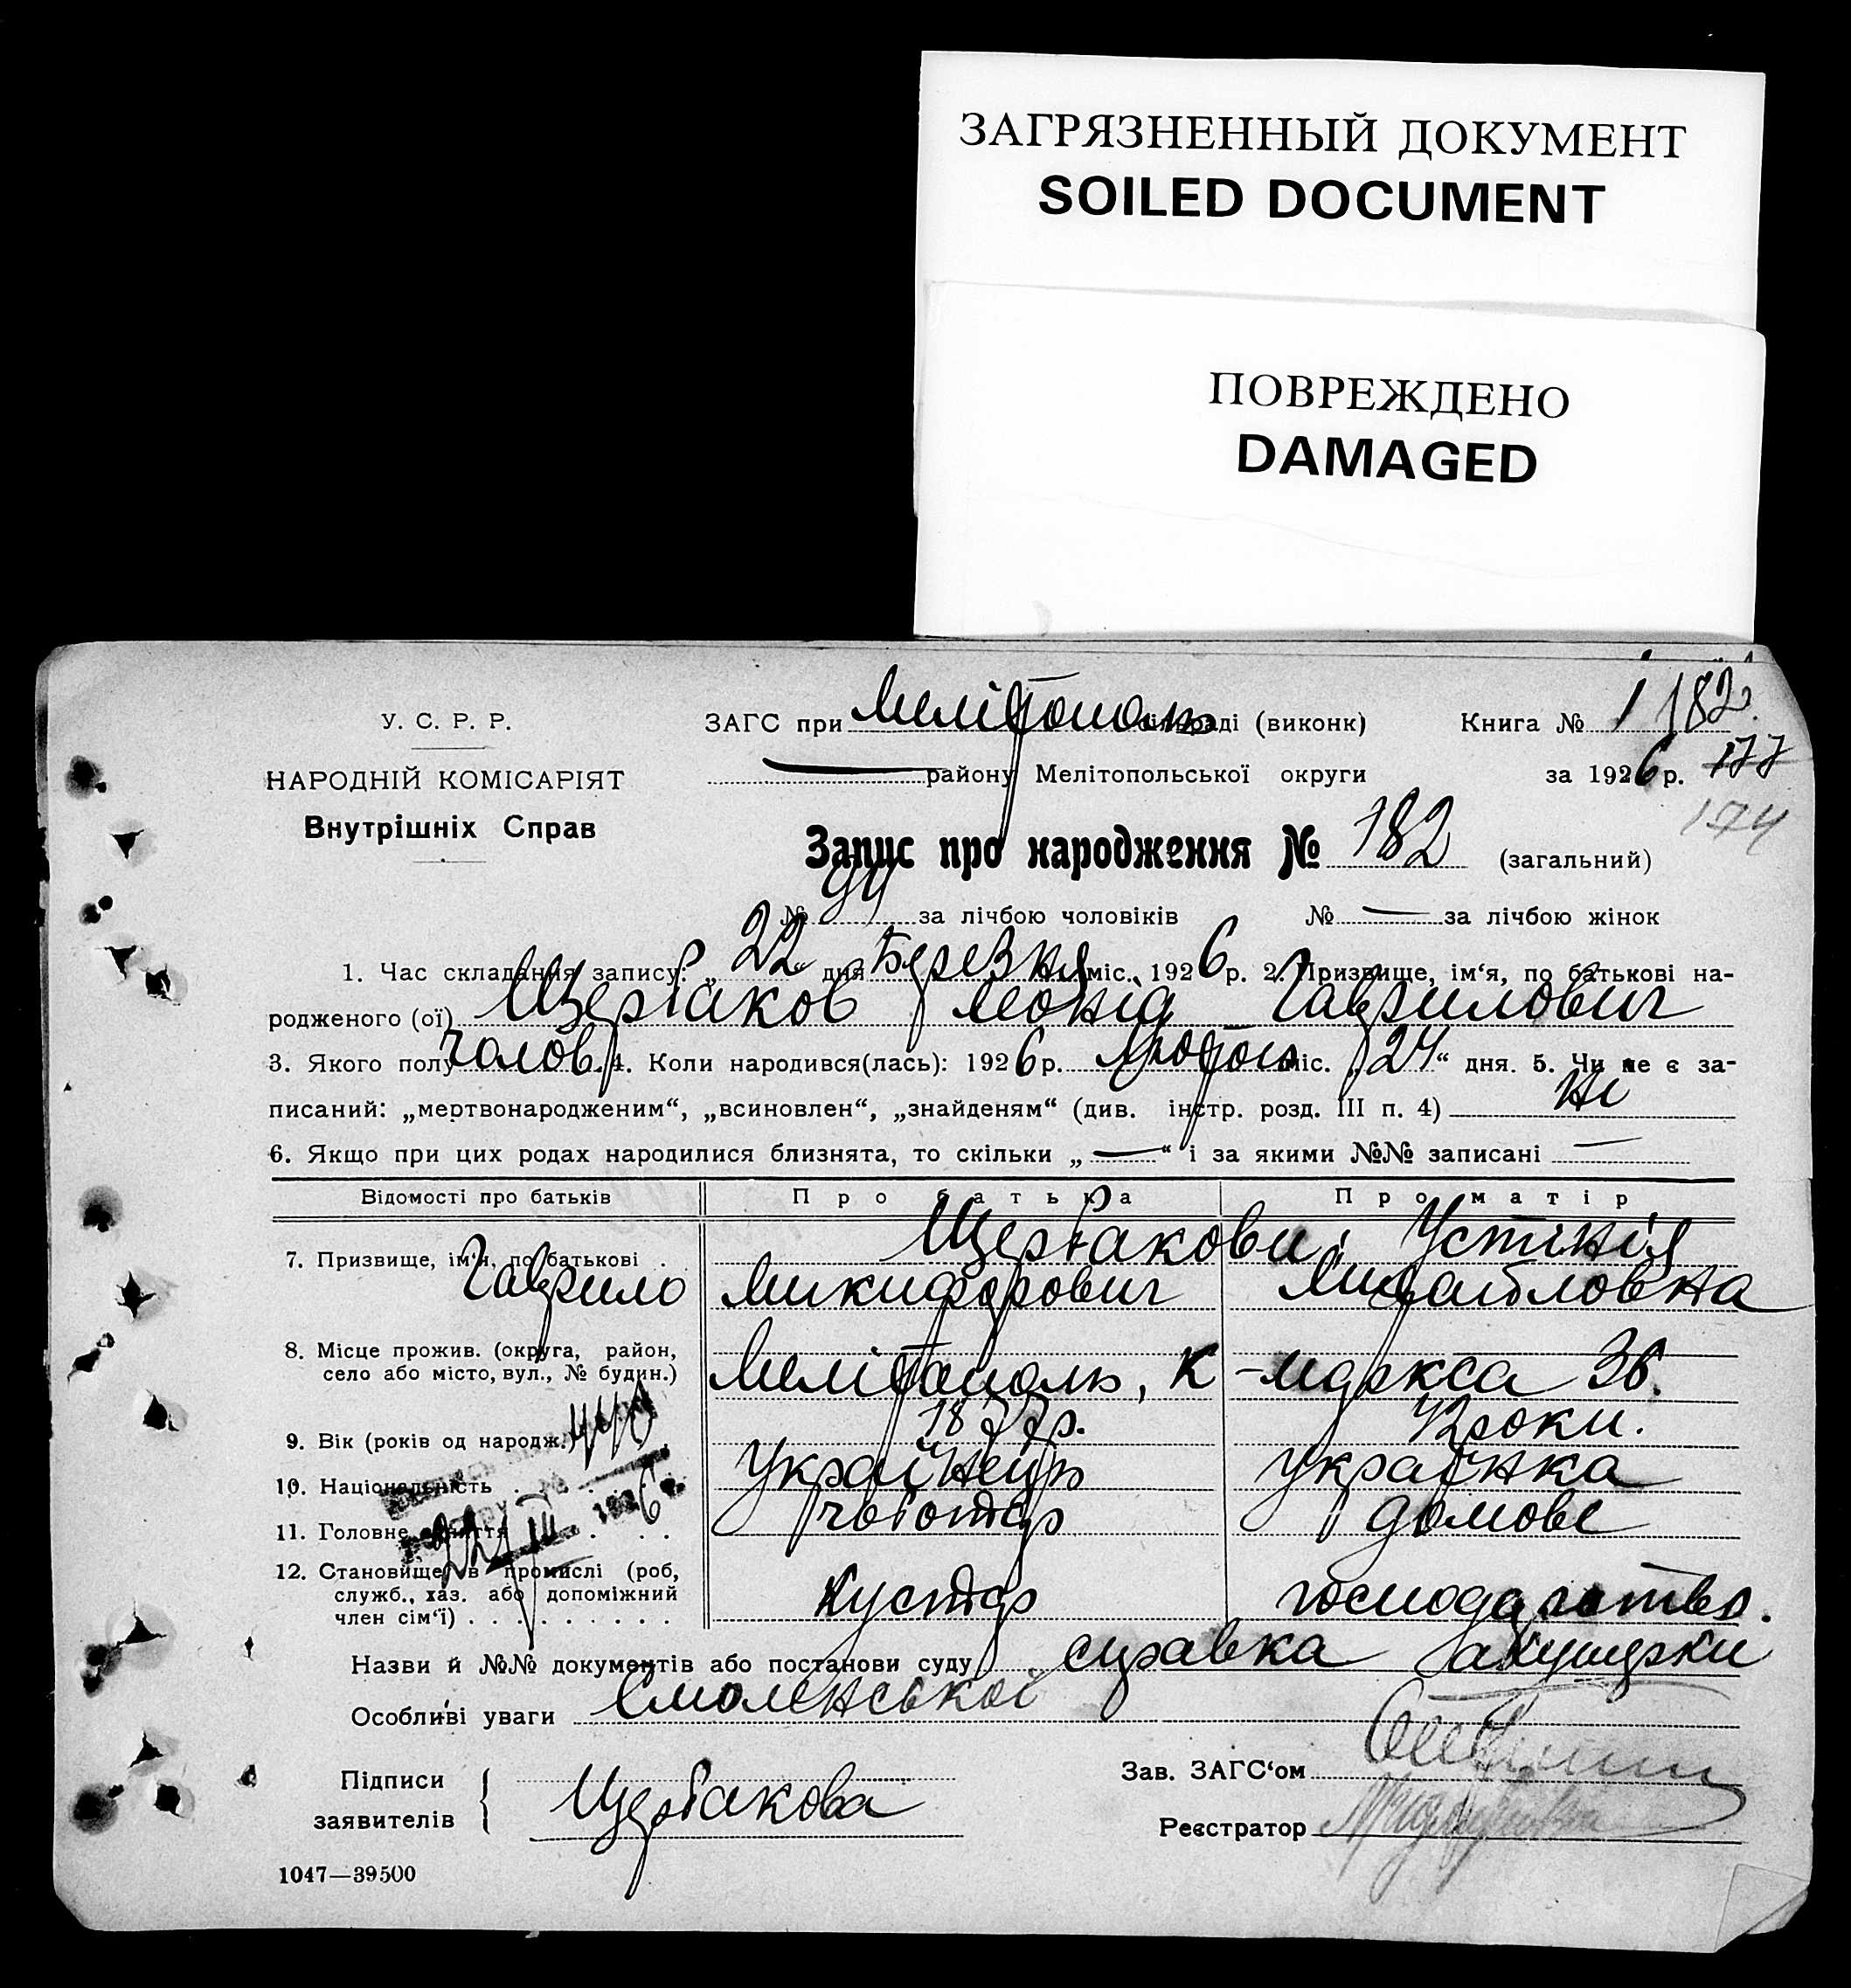 ЗАГРЯЗНЕННЫЙ ДОКУМЕНТ
SOILED DOCUMENT
ПОВРЕЖДЕНО
DAMAGED
У. С. Р. Р.
НАРОДНІЙ КОМІСАРІЯТ
Внутрішніх Справ
ЗАГС при Мелітополь сільраді (виконк) Книга № 1 182.
району Мелітопольської округи за 1926 р. 177
174
Запис про народження № 182 (загальний)
№ 94 за лічбою чоловіків № — за лічбою жінок
1. Час складання запису: „22“ дня Березня міс. 1926 р. 2. Призвище, ім‘я, по батькові на-
родженого (ої) Щербаков Леонід Гаврилович
3. Якого полу чолов. 4. Коли народився(лась): 1926 р. Лютого міс. „24“ дня. 5. Чи не є за-
писаний: „мертвонародженим“, „всиновлен“, „знайденям“ (див. інстр. розд. III п. 4) Ні
6. Якщо при цих родах народилися близнята, то скільки „—“ і за якими №№ записані —
Відомості про батьків Про батька Про матір
7. Призвище, ім‘я, по батькові . Щербакови Устінія
Гаврило Микифорович Михайловна
8. Місце прожив. (округа, район,
село або місто, вул., № будин.) Мелітополь, К-Маркса 36.
9. Вік (років од народж.) 1877 р. 42 роки.
10. Національність . . . Українець Українка
11. Головне заняття . . . чоботар домове
12. Становище в промислі (роб,
служб., хаз. або допоміжний Кустар господарство.
член сім‘ї) . . . . . . . . .
22 III 1926 р.
Назви й №№ документів або постанови суду справка акушерки
Особливі уваги Смоленської
Підписи
заявителів Щербакова
Зав. ЗАГС‘ом
Реєстратор
1047—39500